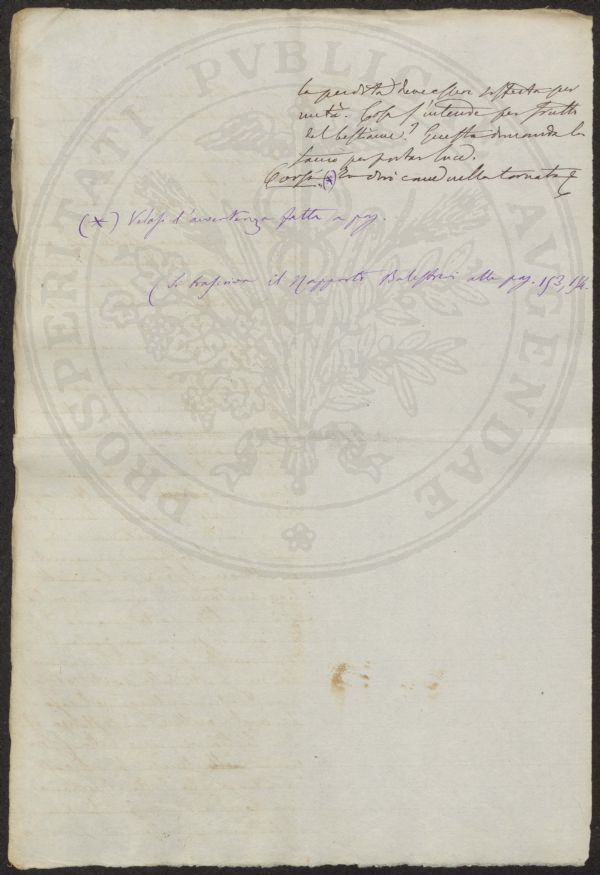 PROSPERITATI PVBLICAE AVGENDAE
la perdita deve esser sofferta per
metà. Cosa s'intende per frutti
del bestiame? Questa domanda la
faccio per portar luce.
Corsi (*) come nella tornata
(*) Vedasi l'avvertenza fatta a pag.
(Si trascriva il Rapporto Balestrini alle pag. 153, 154.